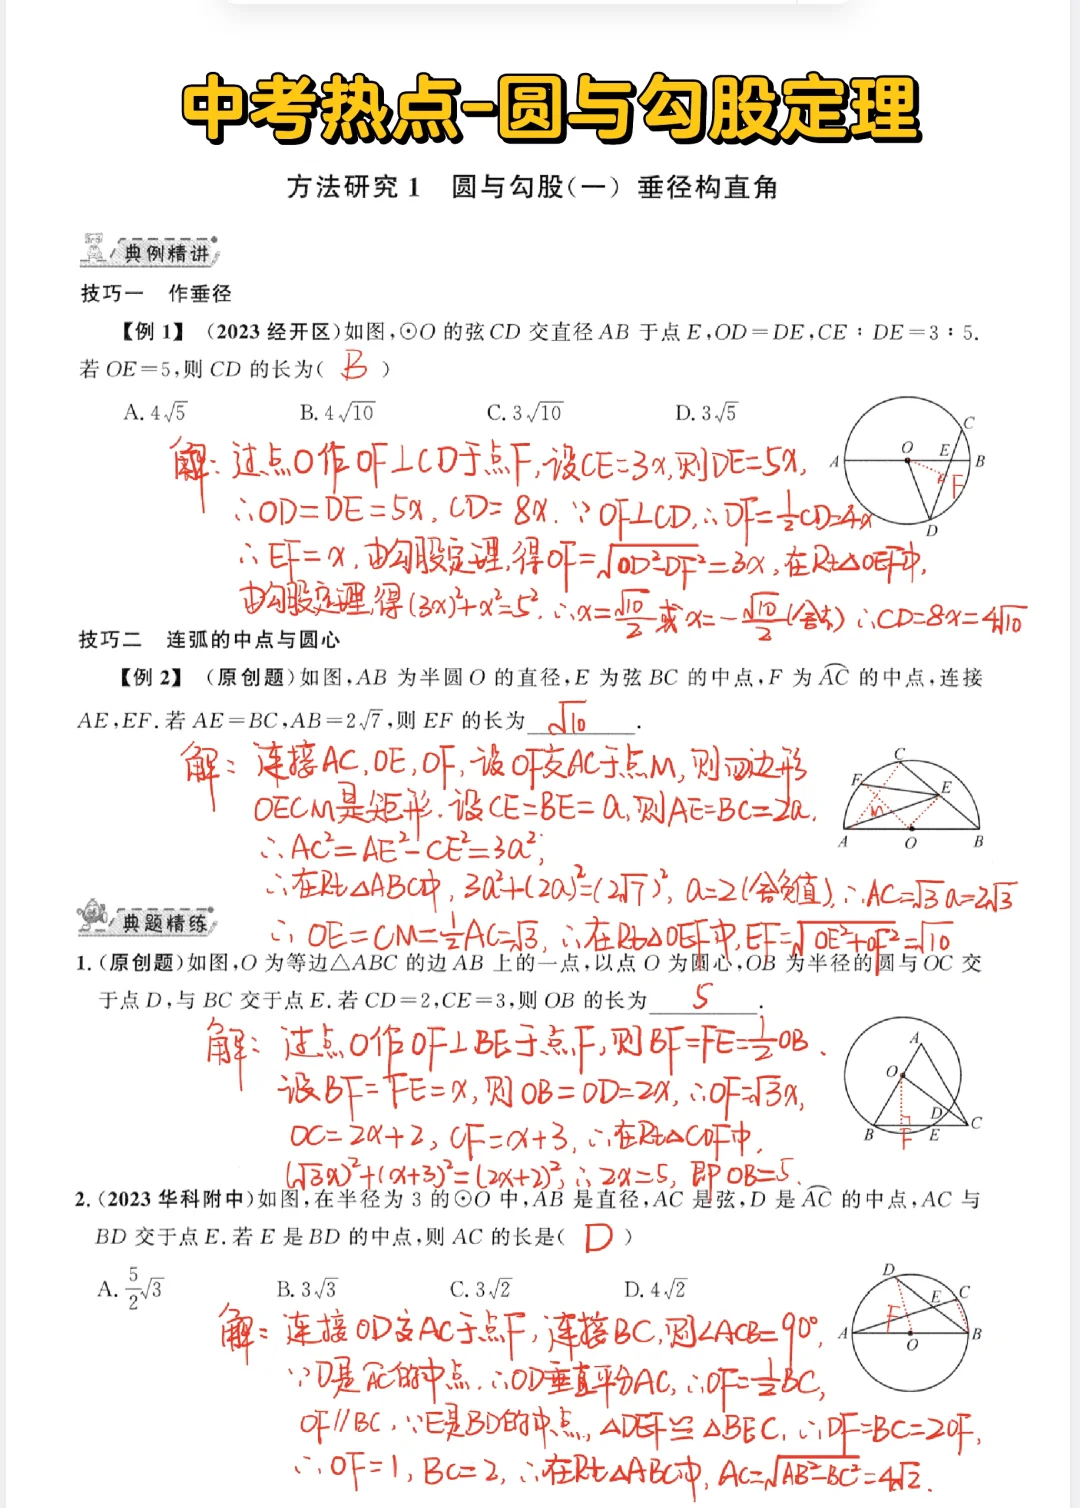 中考热点-圆与勾股定理
方法研究1 圆与勾股(一) 垂径构直角
典例精讲
技巧一 作垂径
【例1】 (2023经开区)如图,⊙O的弦CD交直径AB于点E,OD=DE,CE∶DE=3∶5.
若OE=5,则CD的长为( B )
A. 4√5 B. 4√10 C. 3√10 D. 3√5
解:过点O作OF⊥CD于点F,设CE=3x,则DE=5x,
∴OD=DE=5x, CD=8x. ∵OF⊥CD,∴DF=½CD=4x
∴EF=x,由勾股定理,得OF=√OD²-DF²=3x,在Rt△OEF中,
由勾股定理,得(3x)²+x²=5². ∴x=√10/2或x=-√10/2(舍去) ∴CD=8x=4√10
A O E B C D F
技巧二 连弧的中点与圆心
【例2】 (原创题)如图,AB为半圆O的直径,E为弦BC的中点,F为A͡C的中点,连接
AE,EF.若AE=BC,AB=2√7,则EF的长为 √10 .
解:连接AC,OE,OF,设OF交AC于点M,则四边形
OECM是矩形.设CE=BE=a,则AE=BC=2a.
∴AC²=AE²-CE²=3a²,
∴在Rt△ABC中, 3a²+(2a)²=(2√7)², a=2(舍负值),∴AC=√3a=2√3
∴OE=CM=½AC=√3, ∴在Rt△OEF中,EF=√OE²+OF²=√10
C F E M A O B
典题精练
1. (原创题)如图,O为等边△ABC的边AB上的一点,以点O为圆心,OB为半径的圆与OC交
于点D,与BC交于点E.若CD=2,CE=3,则OB的长为 5 .
解:过点O作OF⊥BE于点F,则BF=FE=½OB.
设BF=FE=x,则OB=OD=2x,∴OF=√3x,
OC=2x+2, CF=x+3,∴在Rt△COF中,
(√3x)²+(x+3)²=(2x+2)²,∴2x=5, 即OB=5.
A O D C B F E
2. (2023华科附中)如图,在半径为3的⊙O中,AB是直径,AC是弦,D是A͡C的中点,AC与
BD交于点E.若E是BD的中点,则AC的长是( D )
A. 5/2√3 B. 3√3 C. 3√2 D. 4√2
解:连接OD交AC于点F,连接BC,则∠ACB=90°,
∵D是A͡C的中点.∴OD垂直平分AC,∴OF=½BC,
OF∥BC,∵E是BD的中点,△DEF≌△BEC,∴DF=BC=2OF,
∴OF=1, BC=2,∴在Rt△ABC中,AC=√AB²-BC²=4√2.
D E C F A O B